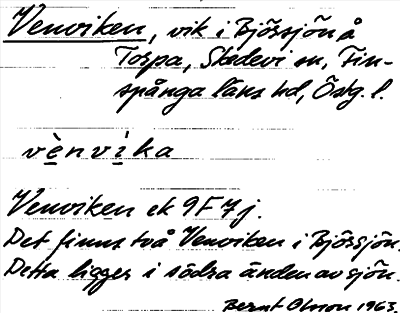 Venviken, vik i Björssjön å
Torpa, Skedevi sn, Fin-
spånga läns hd, Östg. l.
vènvika
Venviken ek 9F7j.
Det finns två Venviken i Björssjön.
Detta ligger i södra änden av sjön.
Bernt Olsson 1963.